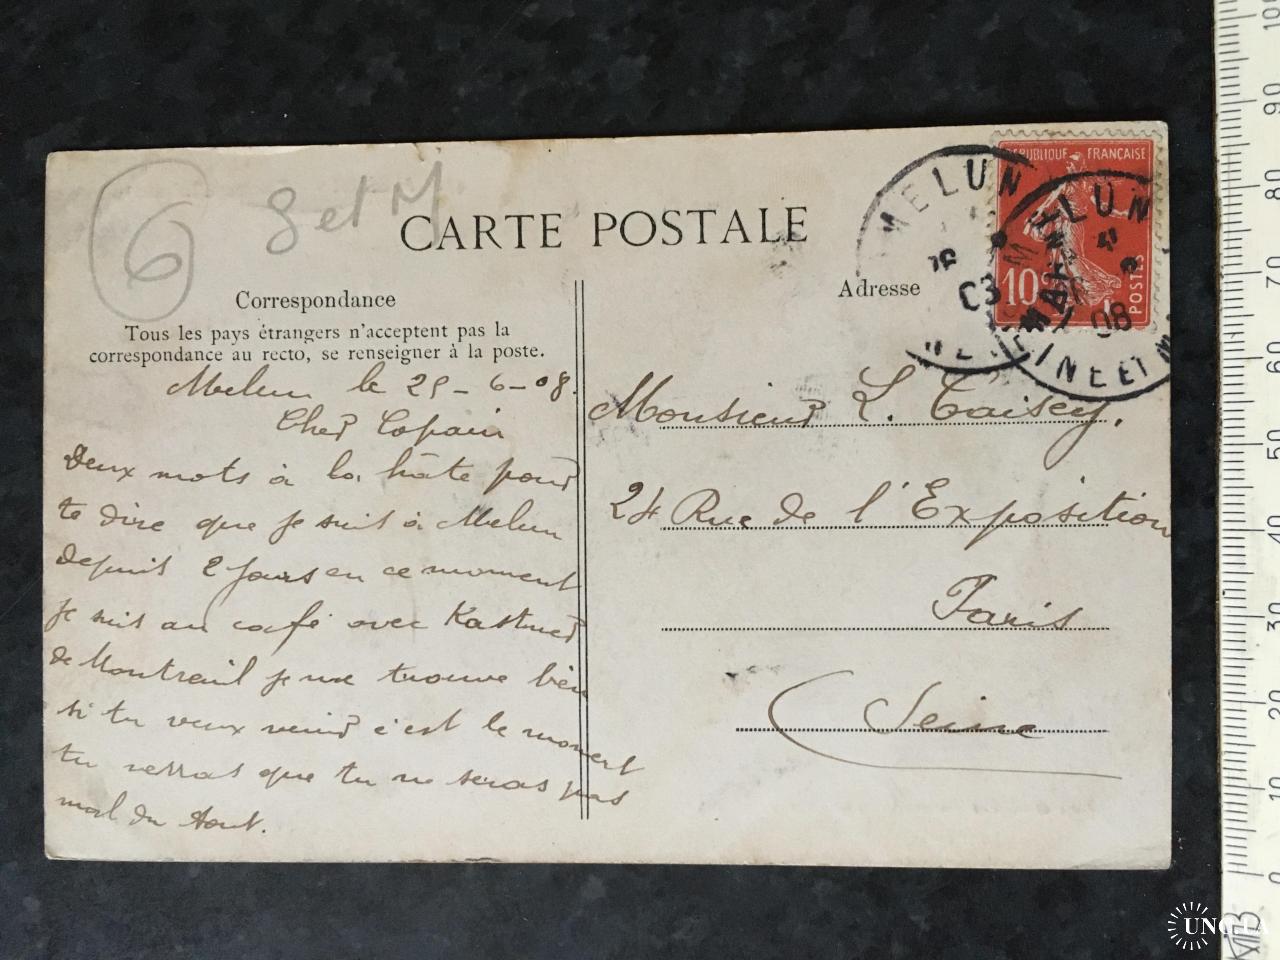 6
S et M
CARTE POSTALE
Correspondance
Tous les pays étrangers n'acceptent pas la
correspondance au recto, se renseigner à la poste.
Adresse
RÉPUBLIQUE FRANÇAISE
10c
POSTES
MELUN
MELUN
SEINE ET MARNE
08
Melun le 25-6-08.
Cher Copain
Deux mots à la hâte pour
te dire que je suis à Melun
depuis 2 jours en ce moment
je suis au café avec Kastner
de Montreuil je me trouve bien
si tu veux venir c'est le moment
tu verras que tu ne seras pas
mal du tout.
Monsieur L.
24 Rue de l'Exposition
Paris
Seine
0 10 20 30 40 50 60 70 80 90 100